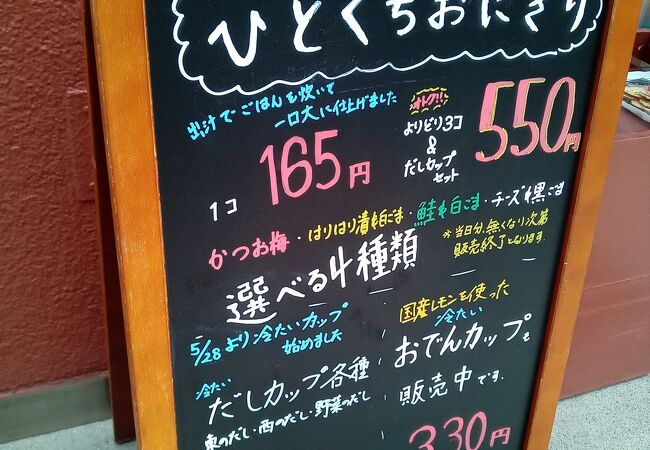 ひとくちおにぎり
出汁でごはんを炊いて
一口大に仕上げました
1コ 165円
オトク!!
よりどり3コ
&
だしカップ
セット
550円
かつお梅・はりはり漬&白ごま・鮭&白ごま・チーズ&黒ごま
選べる4種類
※当日分、無くなり次第
販売終了となります。
5/28より冷たいカップ
始めました
冷たい
だしカップ各種
東のだし・西のだし・野菜のだし
国産レモンを使った
冷たい
おでんカップも
販売中です。
330円